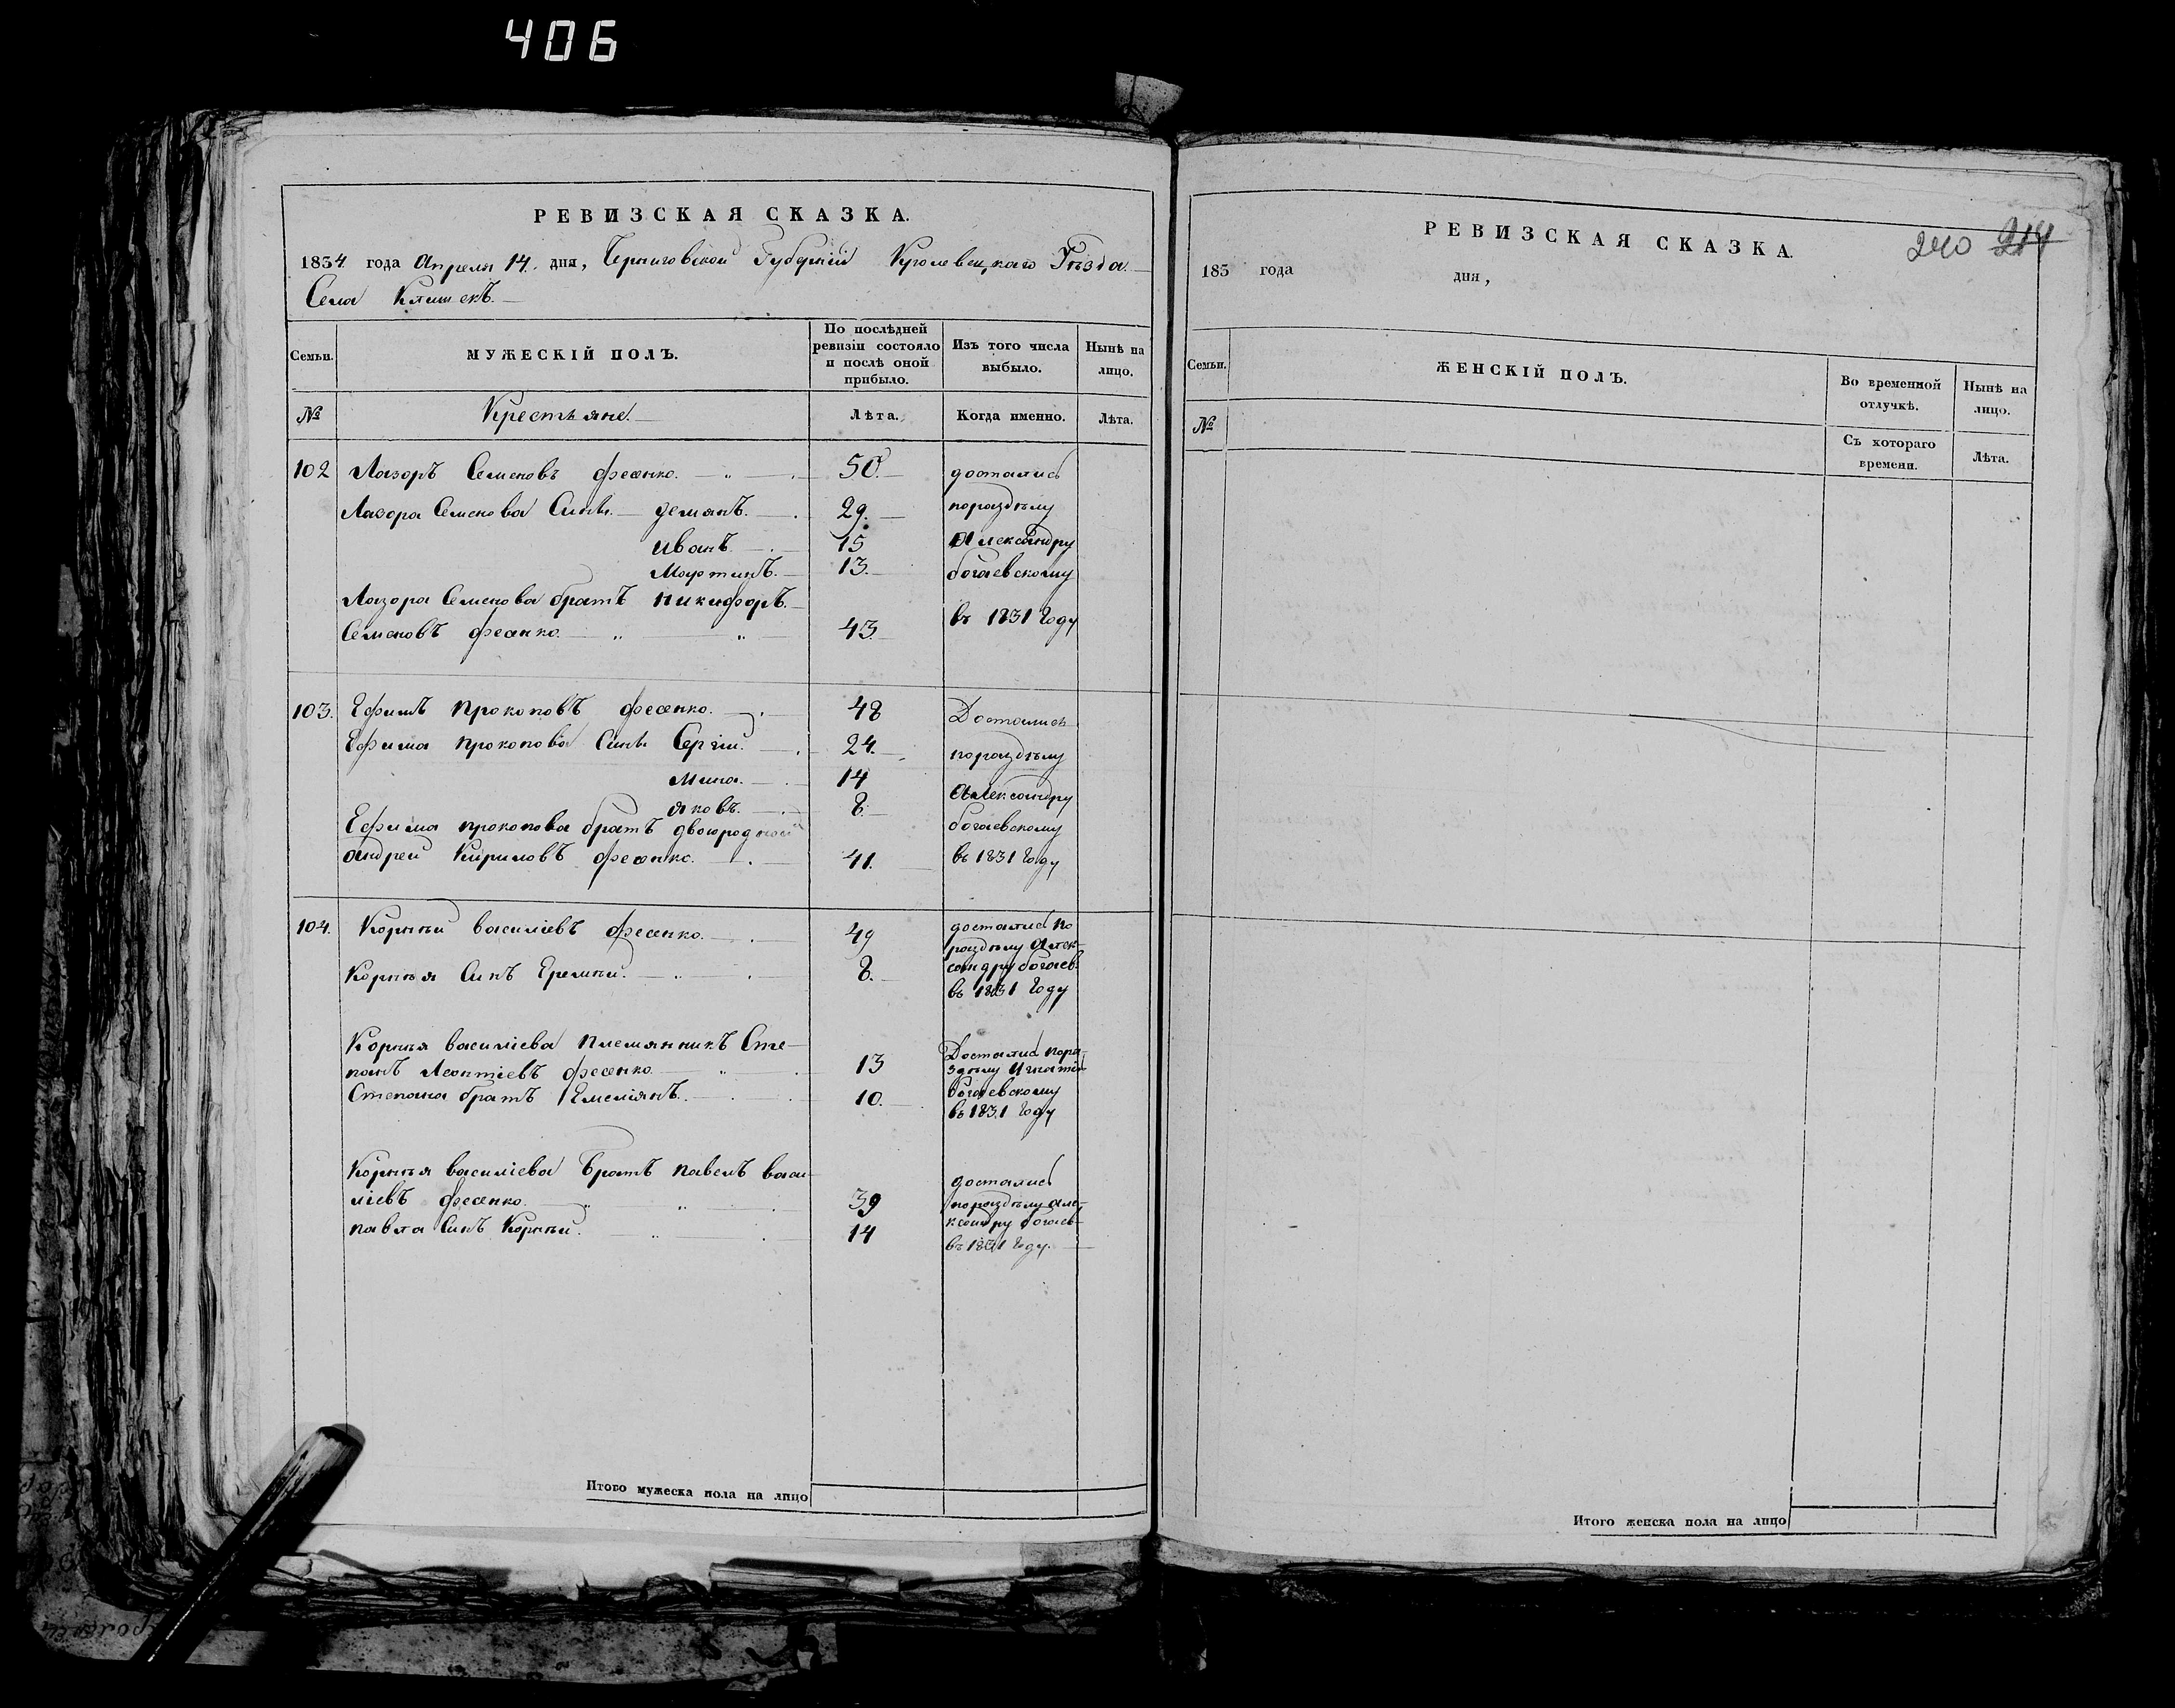 406
РЕВИЗСКАЯ СКАЗКА.
1834 года Апреля 14. дня, Черниговской Губерніи Кролевецкаго Уѣзда.
Села Клишекъ.
Семьи.
МУЖЕСКІЙ ПОЛЪ.
По послѣдней ревизіи состояло и послѣ оной прибыло.
Изъ того числа выбыло.
Нынѣ на лицо.
№
Крестьяне.
Лѣта.
Когда именно.
Лѣта.
102 Лазоръ Семеновъ фесенко. 50. достались
Лазора Семенова Сини. демянъ. 29. поразделу
иванъ. 15 Александру
Мартинъ. 13. богаевскому
Лазора Семенова братъ никифоръ.
Семеновъ фесенко. 43. въ 1831 Году
103. Ефимъ прокоповъ фесенко. 48 Достались
Ефима прокопова Сини Сергіи. 24. поразделу
мина. 14 Александру
яковъ. 8.
Ефима прокопова братъ двоюродной богаевскому
андреи Кириловъ фесенко. 41. въ 1831 Году
104. Корнѣи василіевъ фесенко. 49 достались по
разделу Алек-
Корнѣя Синъ Еремѣи. 8. сандру богаев-
въ 1831 Году
Корнѣя василіева племянникъ Сте-
панъ Леонтіевъ фесенко 13 Достались пора-
зделу Игнатію
Степана братъ Емеліянъ. 10. богаевскому
въ 1831 Году
Корнѣя василіева братъ павелъ васи-
ліевъ фесенко 39 достались
поразделу але-
павла Синъ Корнѣи. 14 ксандру богаев-
въ 1831 Году.
Итого мужеска пола на лицо
РЕВИЗСКАЯ СКАЗКА.
240 214
183 года дня,
Семьи.
ЖЕНСКІЙ ПОЛЪ.
Во временной отлучкѣ.
Нынѣ на лицо.
№
Съ котораго времени.
Лѣта.
Итого женска пола на лицо